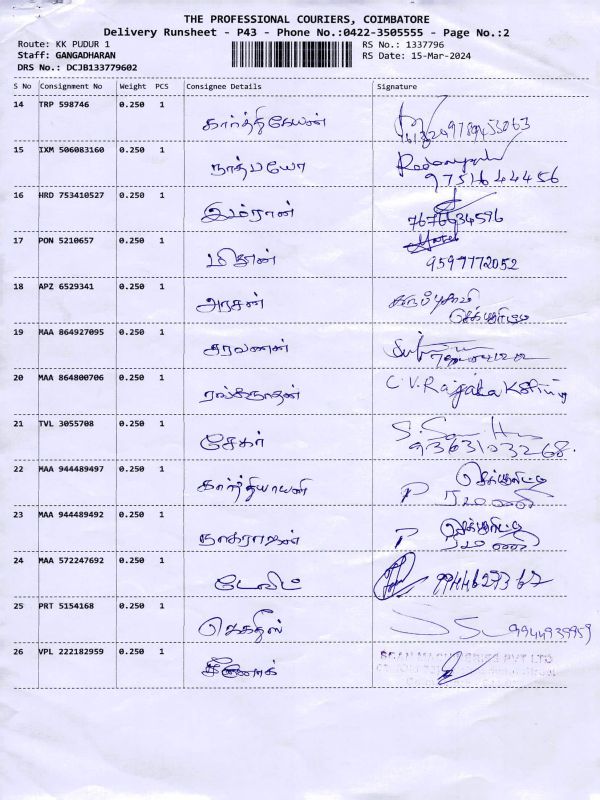 THE PROFESSIONAL COURIERS, COIMBATORE
Delivery Runsheet - P43 - Phone No.:0422-3505555 - Page No.:2
Route: KK PUDUR 1 RS No.: 1337796
Staff: GANGADHARAN RS Date: 15-Mar-2024
DRS No.: DCJB133779602
S No Consignment No Weight PCS Consignee Details Signature
14 TRP 598746 0.250 1 கார்த்திகேயன்
15 IXM 506083160 0.250 1
9751644456
16 HRD 753410527 0.250 1 இம்ரான்
7676634596
17 PON 5210657 0.250 1
9597772052
18 APZ 6529341 0.250 1 அரசன்
செக்யூரிட்டி
19 MAA 864927095 0.250 1 சரவணன்
20 MAA 864800706 0.250 1 ரங்கநாதன் C.V.
21 TVL 3055708 0.250 1 சேகர்
9363103268
22 MAA 944489497 0.250 1 கார்த்தியாயினி செக்யூரிட்டி
P
23 MAA 944489492 0.250 1 நாகராஜன் செக்யூரிட்டி
P
24 MAA 572247692 0.250 1 டேவிட்
25 PRT 5154168 0.250 1 ஜெகதீஸ் 9944939959
26 VPL 222182959 0.250 1